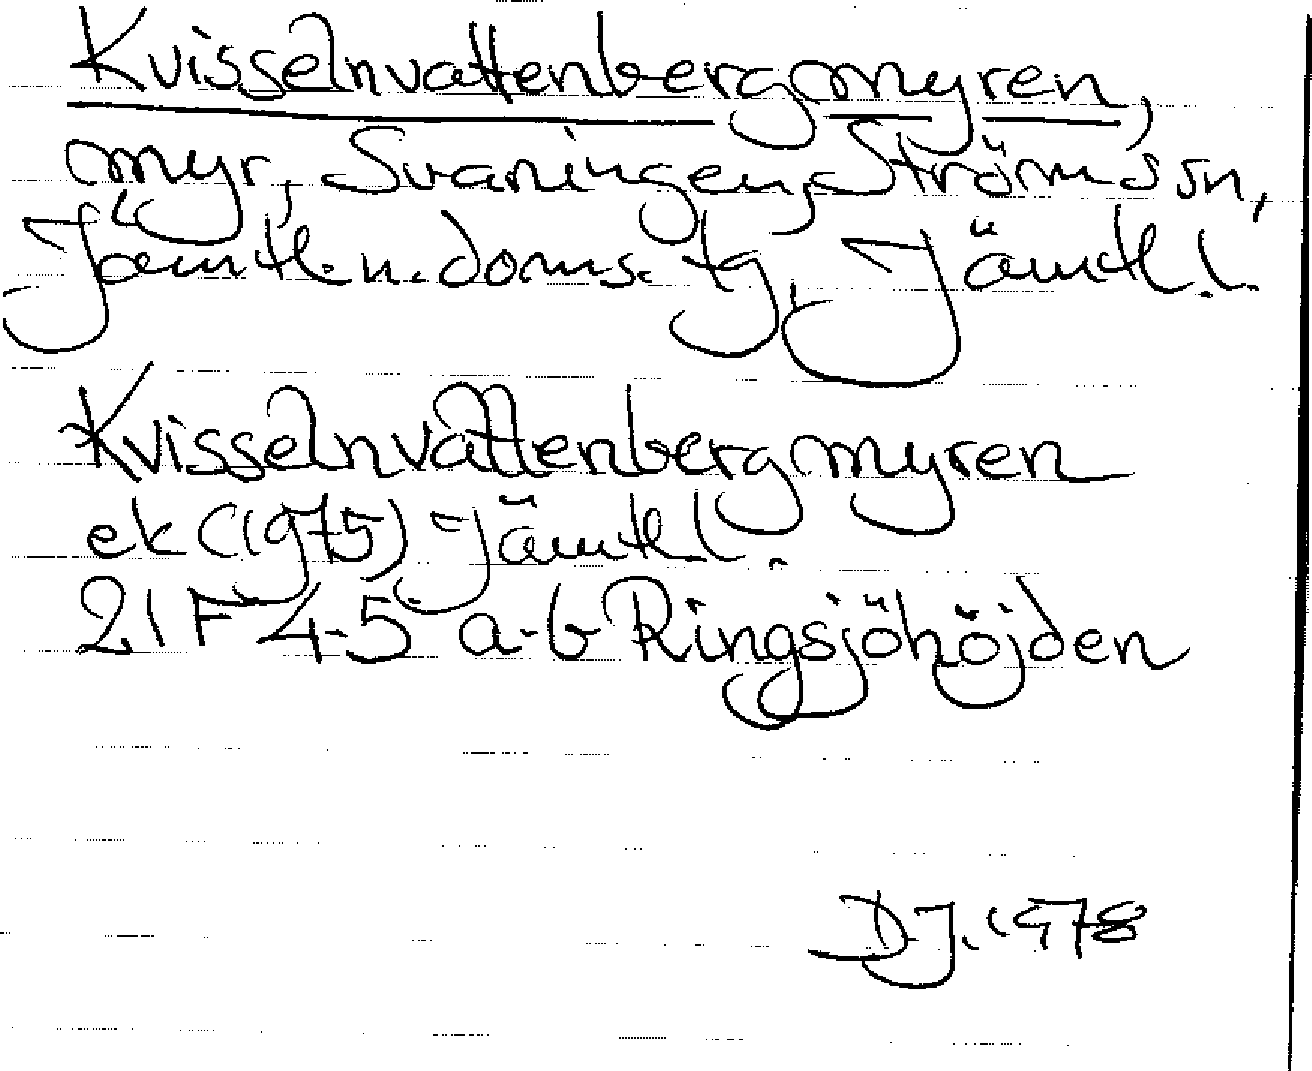 Kvisselnvattenbergmyren,
myr, Svaningen, Ströms sn,
Jämtl. n. doms. tg, Jämtl. l.
Kvisselnvattenbergmyren
ek (1975) Jämtl l.
21 F 4-5 a-b Ringsjöhöjden
DJ. 1978